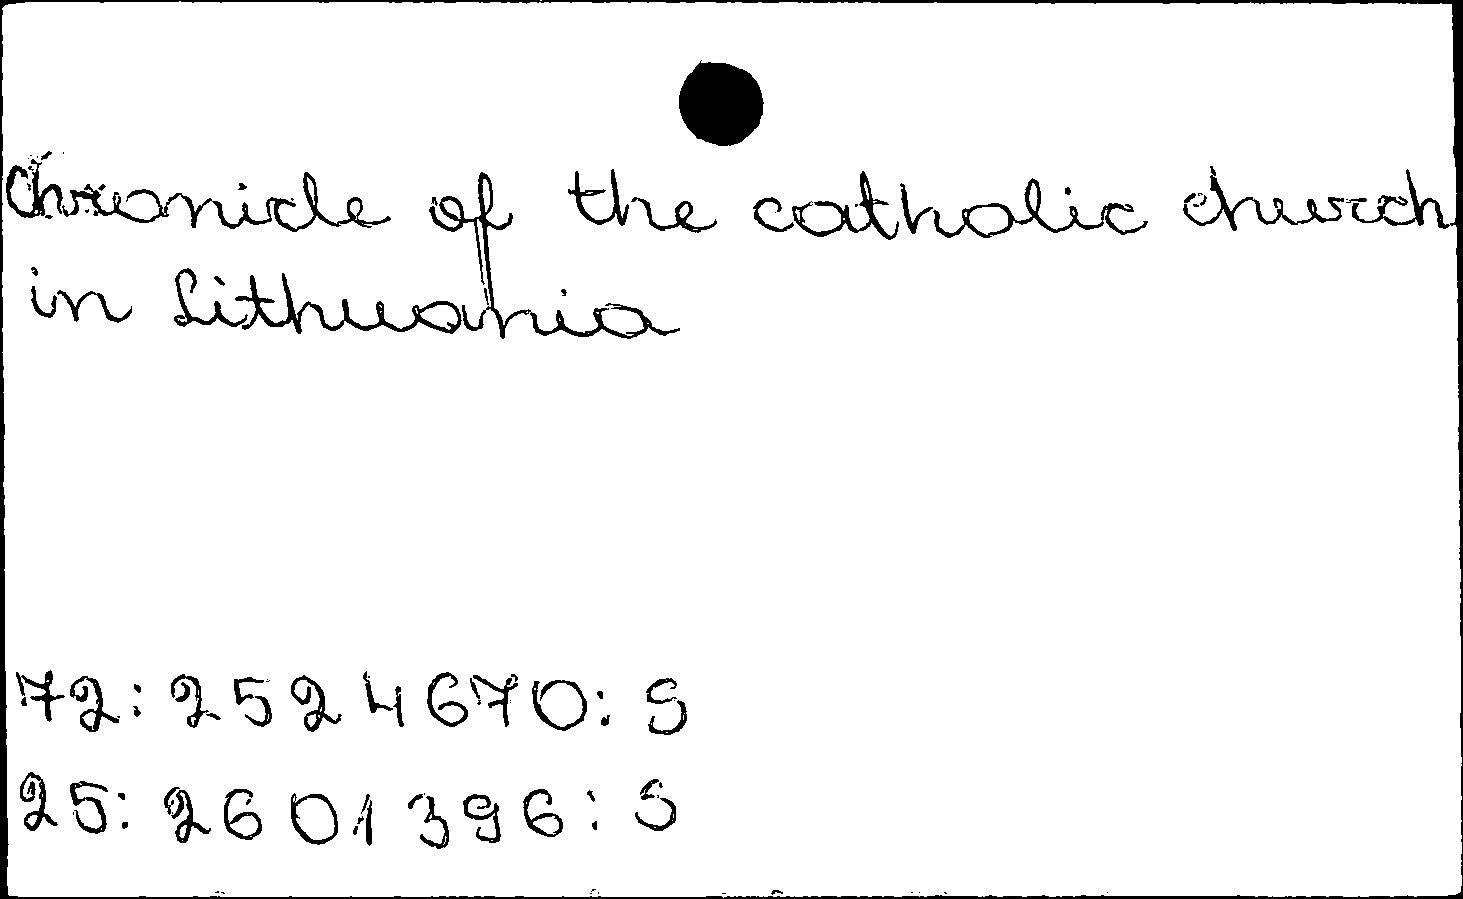 Chronicle of the catholic church
in Lithuania
72: 2524670: S
25: 2601396: S